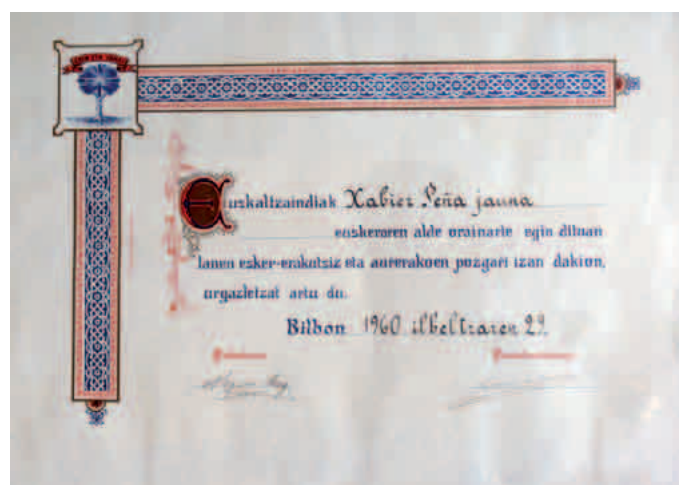 Euskaltzaindiak Xabier Peña jauna
euskeraren alde orainarte egin dituan
lanen esker-erakutsiz eta aurrerakoen pozgari izan dakion,
urgazletzat artu du.
Bilbon 1960 ilbeltzaren 29